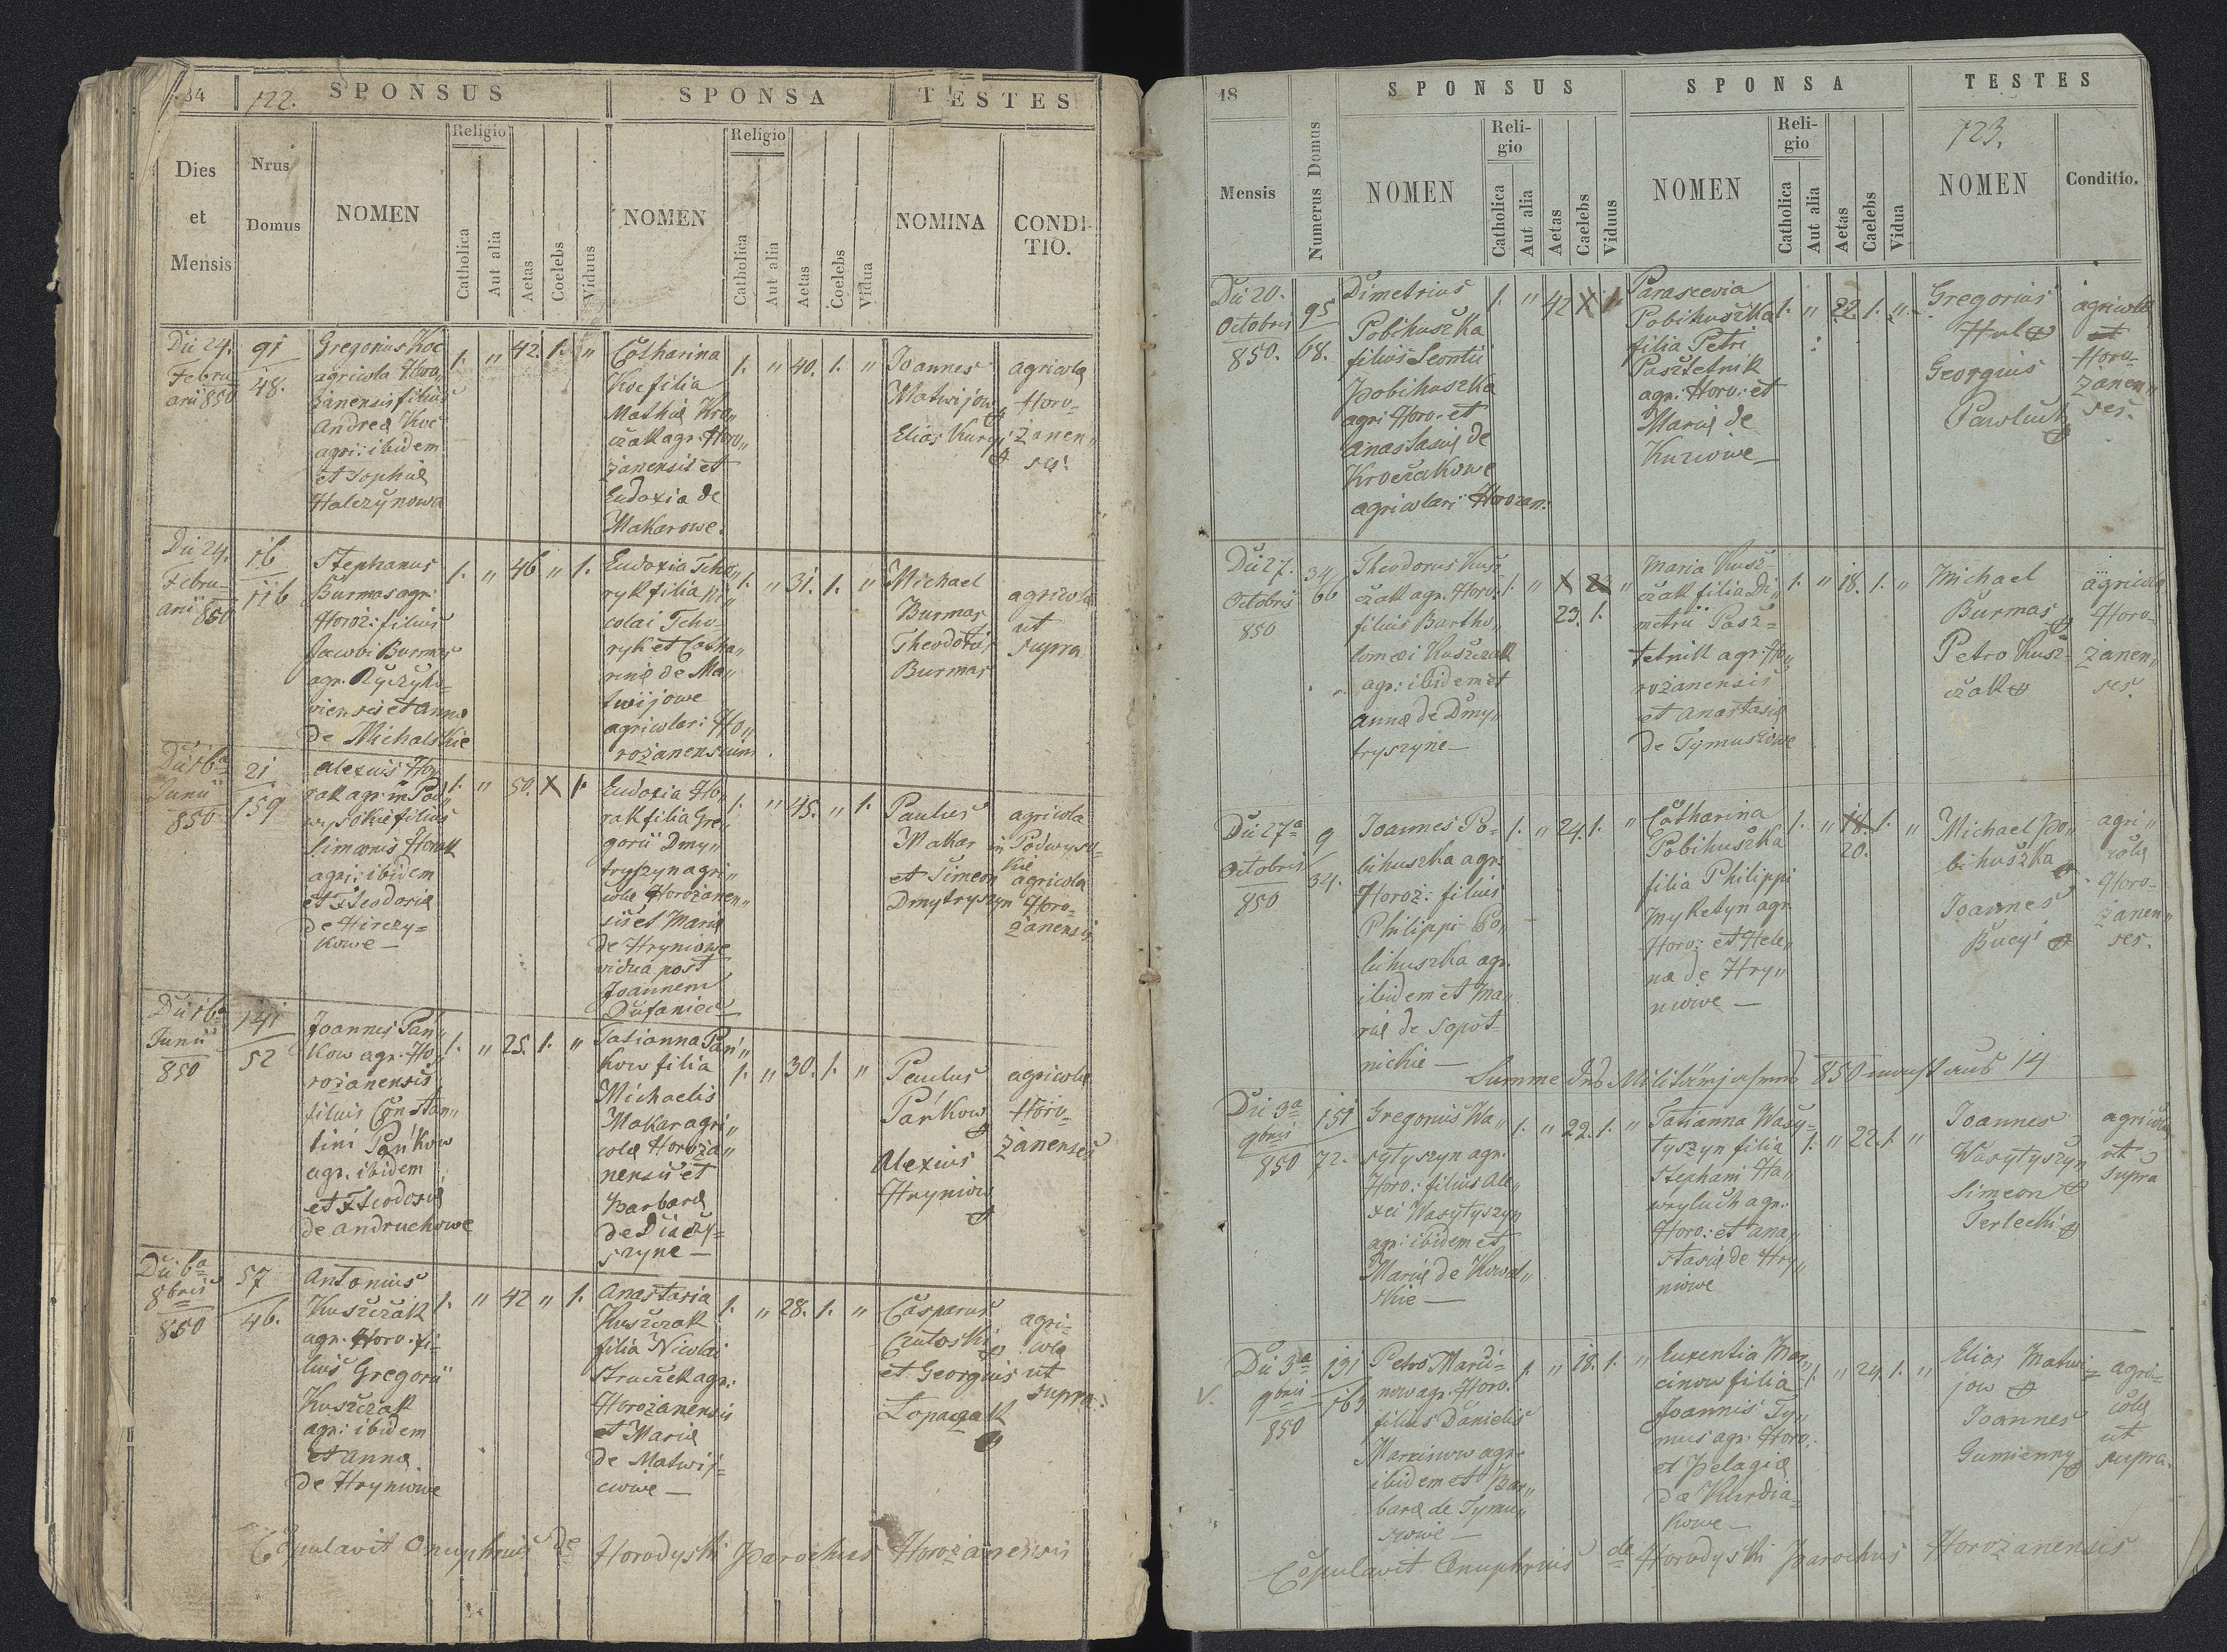 184
722.
SPONSUS
SPONSA
TESTES
Dies
et
Mensis
Nrus
Domus
NOMEN
Religio
Catholica
Aut alia
Aetas
Coelebs
Viduus
NOMEN
Religio
Catholica
Aut alia
Aetas
Coelebs
Vidua
NOMINA
CONDI-
TIO.
Die 24.
Febru-
arii 850
91
48.
Gregorius Koc
agricola Horo„
żanensis filius
Andreæ Koc
agri: ibidem
et Sophiæ
Halczynowa
1. „ 42. 1. „
Catharina
Koc filia
Mathiæ Kro„
czak agr: Horo„
żanensis et
Eudoxia de
Makarowe.
1. „ 40. 1. „
Joannes
Matwijow
Elias Kurij
agricolæ
Horo-
żanen„
ses.
Die 24.
Febru-
arii
850
16
116
Stephanus
Burmas agr:
Horoż: filius
Jacobi Burmas
agr.
et Anna
de Michalskie
1. „ 46 „ 1.
Eudoxia Tcho„
ryk filia Ni„
colai Tcho-
ryk et Catha„
rinæ de Ma„
twijowe
agricolar: Ho„
rożanensium
1. „ 31. 1. „
Michael
Burmas
Theodorus
Burmas
agricolæ
ut
supra
Die 16a
Junii
850
21
159
Alexius Ho„
rak agr: in Pod„
wysokie filius
Simeonis Horak
agri: ibidem
et Theodoriæ
de Hirczy=
kowe —
1. „ 50. X 1.
Eudoxia Ho„
rak filia Gre„
gorii Dmy„
tryszyn agri„
colæ Horożanen„
sis et Mariæ
de Hryniowe
vidua post
Joannem
Dufaniec
1. „ 45. „ 1.
Paulus
Makar
et Simeon
Dmytryszyn
agricola
in Podwyso-
kie
agricola
Horo-
żanensis
Die 16a
Junii
850
141
52
Joannes Pań„
kow agr. Ho„
rożanensis
filius Constan„
tini Pańkow
agr. ibidem
et Theodosiæ
de Andruchowe
1. „ 25. 1. „
Tatianna Pań„
kow filia
Michaelis
Makar agri„
colæ Horoża„
nensis et
Barbaræ
de Diaczy=
szyne —
1. „ 30. 1. „
Paulus
Pańkow
Alexius
Hryniow
agricolæ
Horo-
żanenses
Die 6a
8bris
850
57
46.
Antonius
Kuszczak
agr. Horo. fi-
lius Gregorii
Kuszczak
agr: ibidem
et Annæ
de Hryniowe
1. „ 42 „ 1.
Anastasia
Kuszczak
filia Nicolai
Struczek agr:
Horożanensis
et Mariæ
de Matwij=
cowe —
1. „ 28. 1. „
Casparus
et Georgius
Lopaczak
agri=
colæ
ut
supra.
Copulavit Onuphrius de Horodyski Parochus Horożanensis
18
SPONSUS
SPONSA
TESTES
723.
Mensis
Numerus Domus
NOMEN
Reli-
gio
Catholica
Aut alia
Aetas
Caelebs
Viduus
NOMEN
Reli-
gio
Catholica
Aut alia
Aetas
Caelebs
Vidua
NOMEN
Conditio.
Die 20.
Octobris
850.
95
68.
Dimetrius
Pobihuszka
filius Leontii
Pobihuszka
agr: Horo. et
Anastasiæ de
Kroczakowe
agricolari Horozan:
1. „ 42 X 1.
Parascevia
Pobihuszka
filia Petri
Pasztetnik
agr: Horo: et
Mariæ de
Kuziowe —
1. „ 22. 1. „
Gregorius
Hul
Georgius
Pawluch
agricolæ
et
Horo-
żanen„
ses.
Die 27.
Octobris
850
34
66
Theodorus Kusz
czak agr. Horo.
filius Bartho„
lomæi Kuszczak
agr: ibidem et
Annæ de Dmy„
tryszyne —
1. „ X 22 „
23. 1.
Maria Kusz-
czak filia Di„
metrii Pasz=
tetnik agr: Ho„
rożanensis
et Anastasiæ
de Tymusiowe
1. „ 18. 1. „
Michael
Burmas
Petro Kusz-
czak
agricolæ
Horo-
żanen„
ses.
Die 27a
Octobris
850
9
34.
Joannes Po-
bihuszka agr.
Horoż: filius
Philippi Po„
bihuszka agr.
ibidem et Ma„
riæ de Sopot-
nickie —
1. „ 24. 1. „
Catharina
Pobihuszka
filia Philippi
Mykietyn agr.
Horo: et Hele„
næ de Hry„
niowe —
1. „ 18. 1. „
20.
Michael Po„
bihuszka
Joannes
Bucyi
agri„
colæ
Horo-
żanen„
ses.
Summe des Militärjahres 850 macht aus 14
Die 3a
9bris
850
151
72.
Gregorius Wa„
sytyszyn agr.
Horo: filius Ale„
xei Wasytyszyn
agr: ibidem et
Mariæ de Kowal„
skie —
1. „ 22. 1. „
Tatianna Wasy-
tyszyn filia
Stephani Ha„
wryluch agr.
Horo: et Ana„
stasiæ de Hry„
niowe
1. „ 22. 1. „
Joannes
Wasytyszyn
Simeon
Perlecki
agricolæ
ut
supra
V.
Die 3a
9bris
850
131
163
Petro Marci=
now agr. Horo.
filius Danielis
Marcinow agr.
ibidem et Bar„
baræ de Tymu„
siowe —
1. „ 18. 1. „
Euxentia Mar„
cinow filia
Joannis Ty„
mus agr. Horo.
et Pelagiæ
de Kurdia-
kowe —
1. „ 24. 1. „
Elias Matwi=
jow
Joannes
Gumienny
agri-
colæ
ut
supra.
Copulavit Onuphrius de Horodyski Parochus Horożanensis